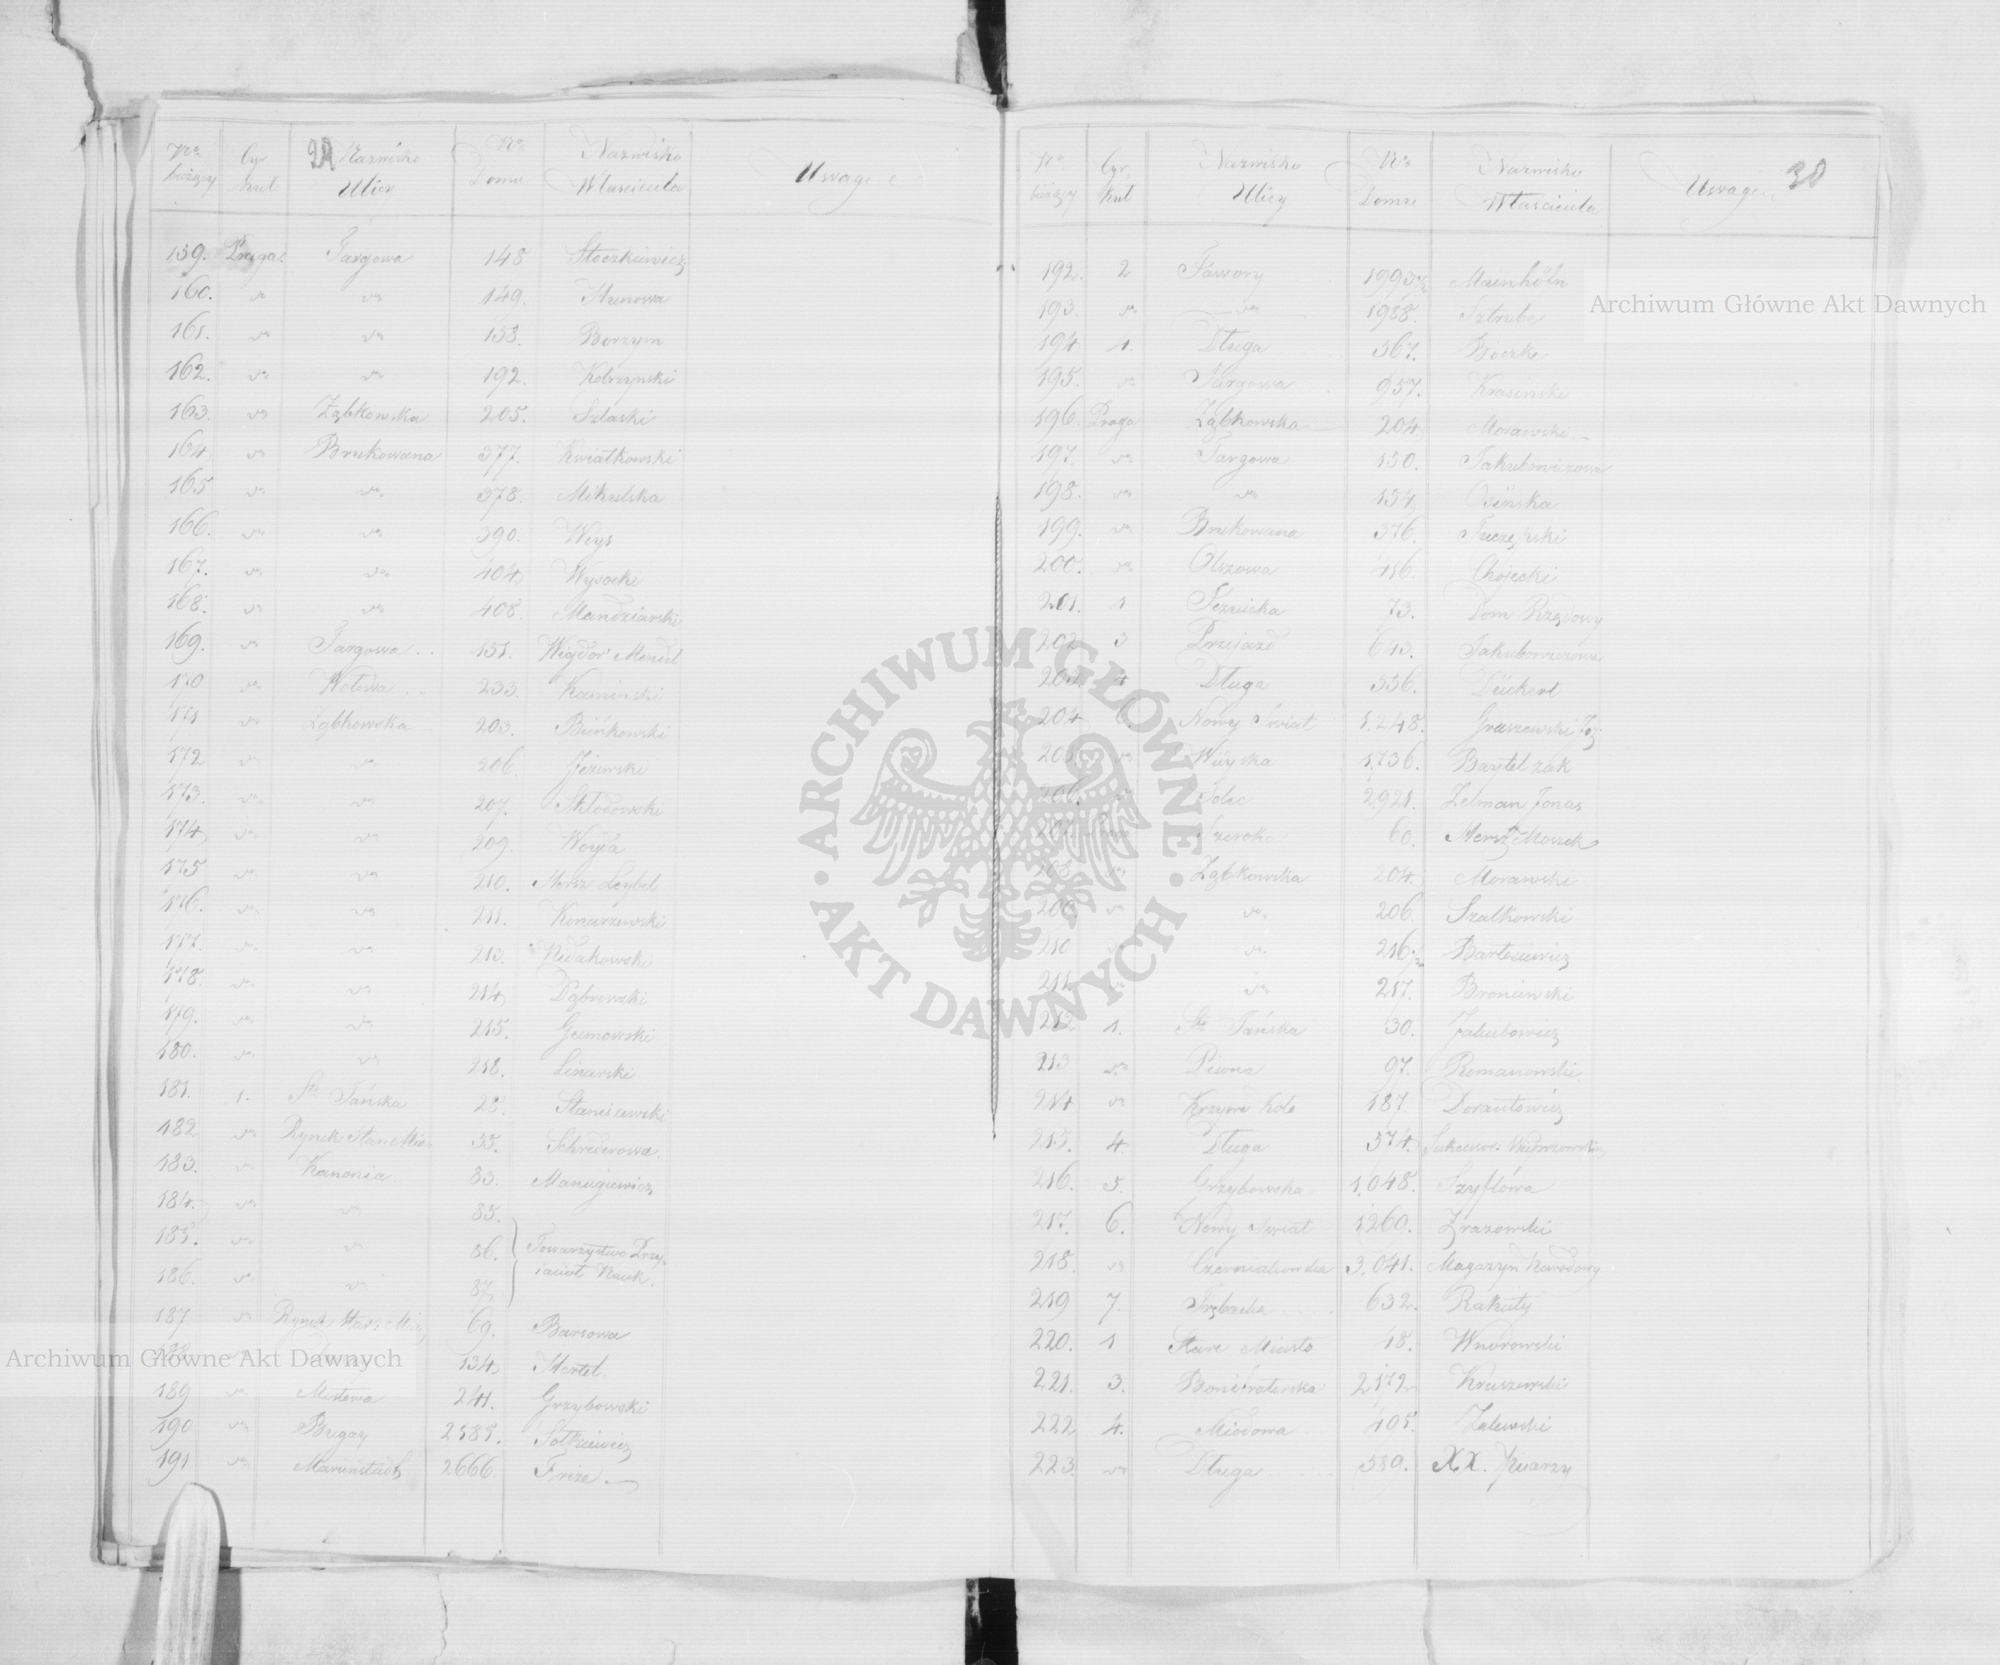 Nro bieżący Cyrkuł 29 Nazwisko Ulicy Nro Domu Nazwisko Właściciela Uwagi
159. Praga. Targowa 148 Stoczkiewicz
160. " " 149.
161. " " 153. Borzym
162. " " 192. Kobrzynski
163. " Ząbkowska 205. Szlaski
164. " Brukowana 377. Kwiatkowski
165 " " 378. Mikulska
166. " " 390. Weys
167. " " 404 Wysocki
168. " " 408. Mandziarski
169. " Targowa 151. Wigdor Mendel
170 " Wołowa 233. Kaminski
171 " Ząbkowska 203. Bieńkowski
172 " " 206. Jeżewski
173. " " 207. Skłodowski
174 " " 209. Woyda
175 " " 210. Mersz Leybel
176. " " 211. Konarzewski
177. " " 213.
178. " " 214 Dąbrowski
179. " " 215. Gumowski
180. " " 218. Linarski
181. 1. Sto Jańska 28. Staniszewski
182 " Rynek Stare Mia: 55. Schrederowa.
183. " Kanonia 83. Manugiewicz
184. " " 85.
185. " " 86. Towarzystwo Przy-
186. " " 87 iaciół Nauk.
187 " Rynek Star: Mia 69. Barsowa
188 " 134 Mertel.
189 " Mostowa 241. Grzybowski
190 " Bugay 2585. Sotkiewicz
191 " Marienstadt 2666. Frize
Nro bieżący Cyrkuł Nazwisko Ulicy Nro Domu Nazwisko Właściciela Uwagi 30
192. 2 Fawory 1993 Mainhöln
193. " " 1988. Sztrube
194 1. Długa 567. Boczke
195. " Targowa 957. Krasiński
196. Praga Ząbkowska 204 Morawski
197. " Targowa 150. Jakubowiczowa
198. " " 154 Osińska
199. " Brukowana 376.
200. " Olszowa 416. Choiecki
201. 1 Jezuicka 73. Dom Rządowy
202 3 Przejazd 643. Jakubowiczowa
203. 4 Długa 556. Dückert
204 6. Nowy Swiat 1.248. Gruszewski
205. " Wieyska 1,736. Bartelzak
206. " Solec 2,921. Zelman Jonas
207. Praga Szeroka 60. Mersz Moszek
208 " Ząbkowska 204. Morawski
209. " " 206. Szatkowski
210 " " 216 Bartosiewicz
211. " " 217. Broniewski
212 1. Sto Jańska 30. Jakubowicz
213 " Piwna 97. Romanowski
214 " Krzywe Koło 187. Dorantowicz
215. 4. Długa 574.
216. 5. Grzybowska 1,048. Szyflówa
217. 6. Nowy Swiat 1260. Zrazowski
218. " Czerniakowska 3,041. Magazyn Narodowy
219 7. Trębacka 632. Rakiety
220. 1 Stare Miasto 48. Wnorowski
221. 3. Bonifraterska 2172 Kruszewski
222 4. Miodowa 495. Zalewski
223. " Długa 589. XX. Pijarzy
ARCHIWUM GŁÓWNE AKT DAWNYCH
Archiwum Główne Akt Dawnych
Archiwum Główne Akt Dawnych